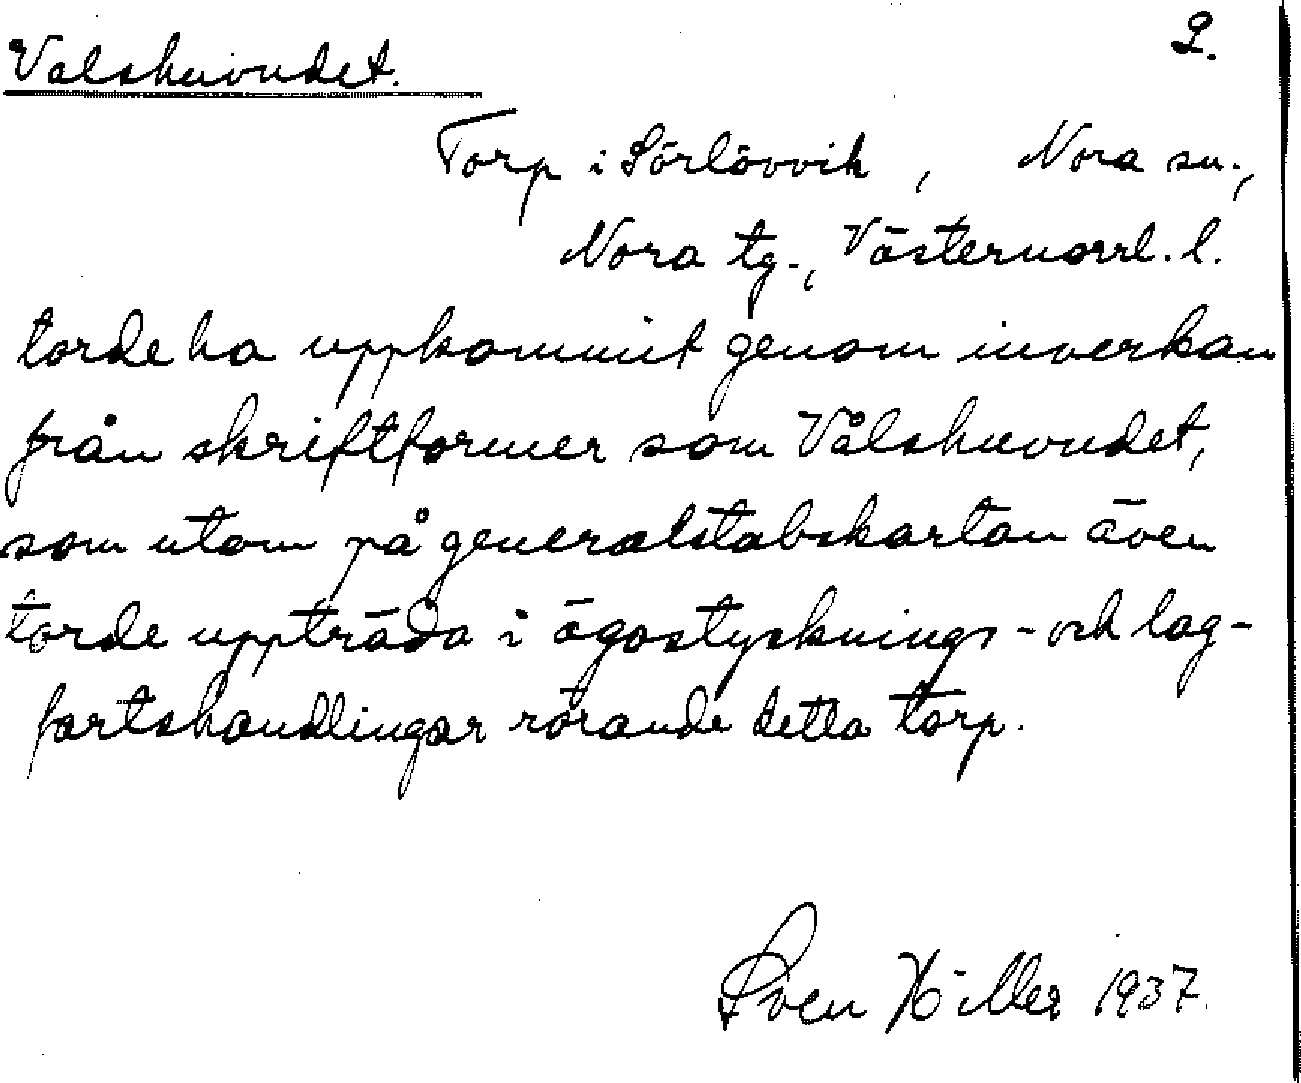 2.
Valshuvudet.
Torp i Sörlövvik, Nora sn.,
Nora tg., Västernorrl. l.
torde ha uppkommit genom inverkan
från skriftformer som Vålshuvudet,
som utom på generalstabskartan även
torde uppträda i ägostycknings- och lag-
fartshandlingar rörande detta torp.
Sven Hiller 1937.